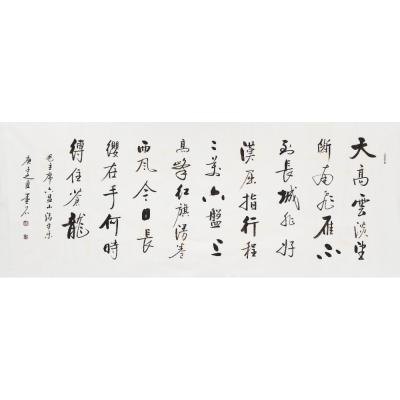 天高雲淡望
断南飛雁不
到長城非好
漢屈指行程
二萬六盤山上
高峰红旗漫卷
西風今日長
纓在手何時
縛住蒼龍
毛主席六盘山清平乐
庚子之夏